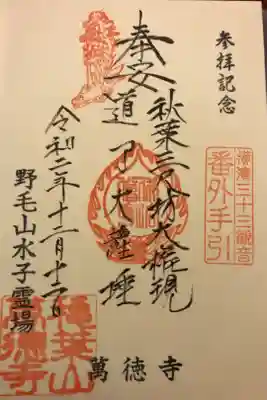 参拝記念
横濱三十三観音
番外手引
奉安
秋葉三尺坊大権現
道了大薩埵
令和二年十二月十三日
野毛山水子霊場
萬徳寺
萬徳寺